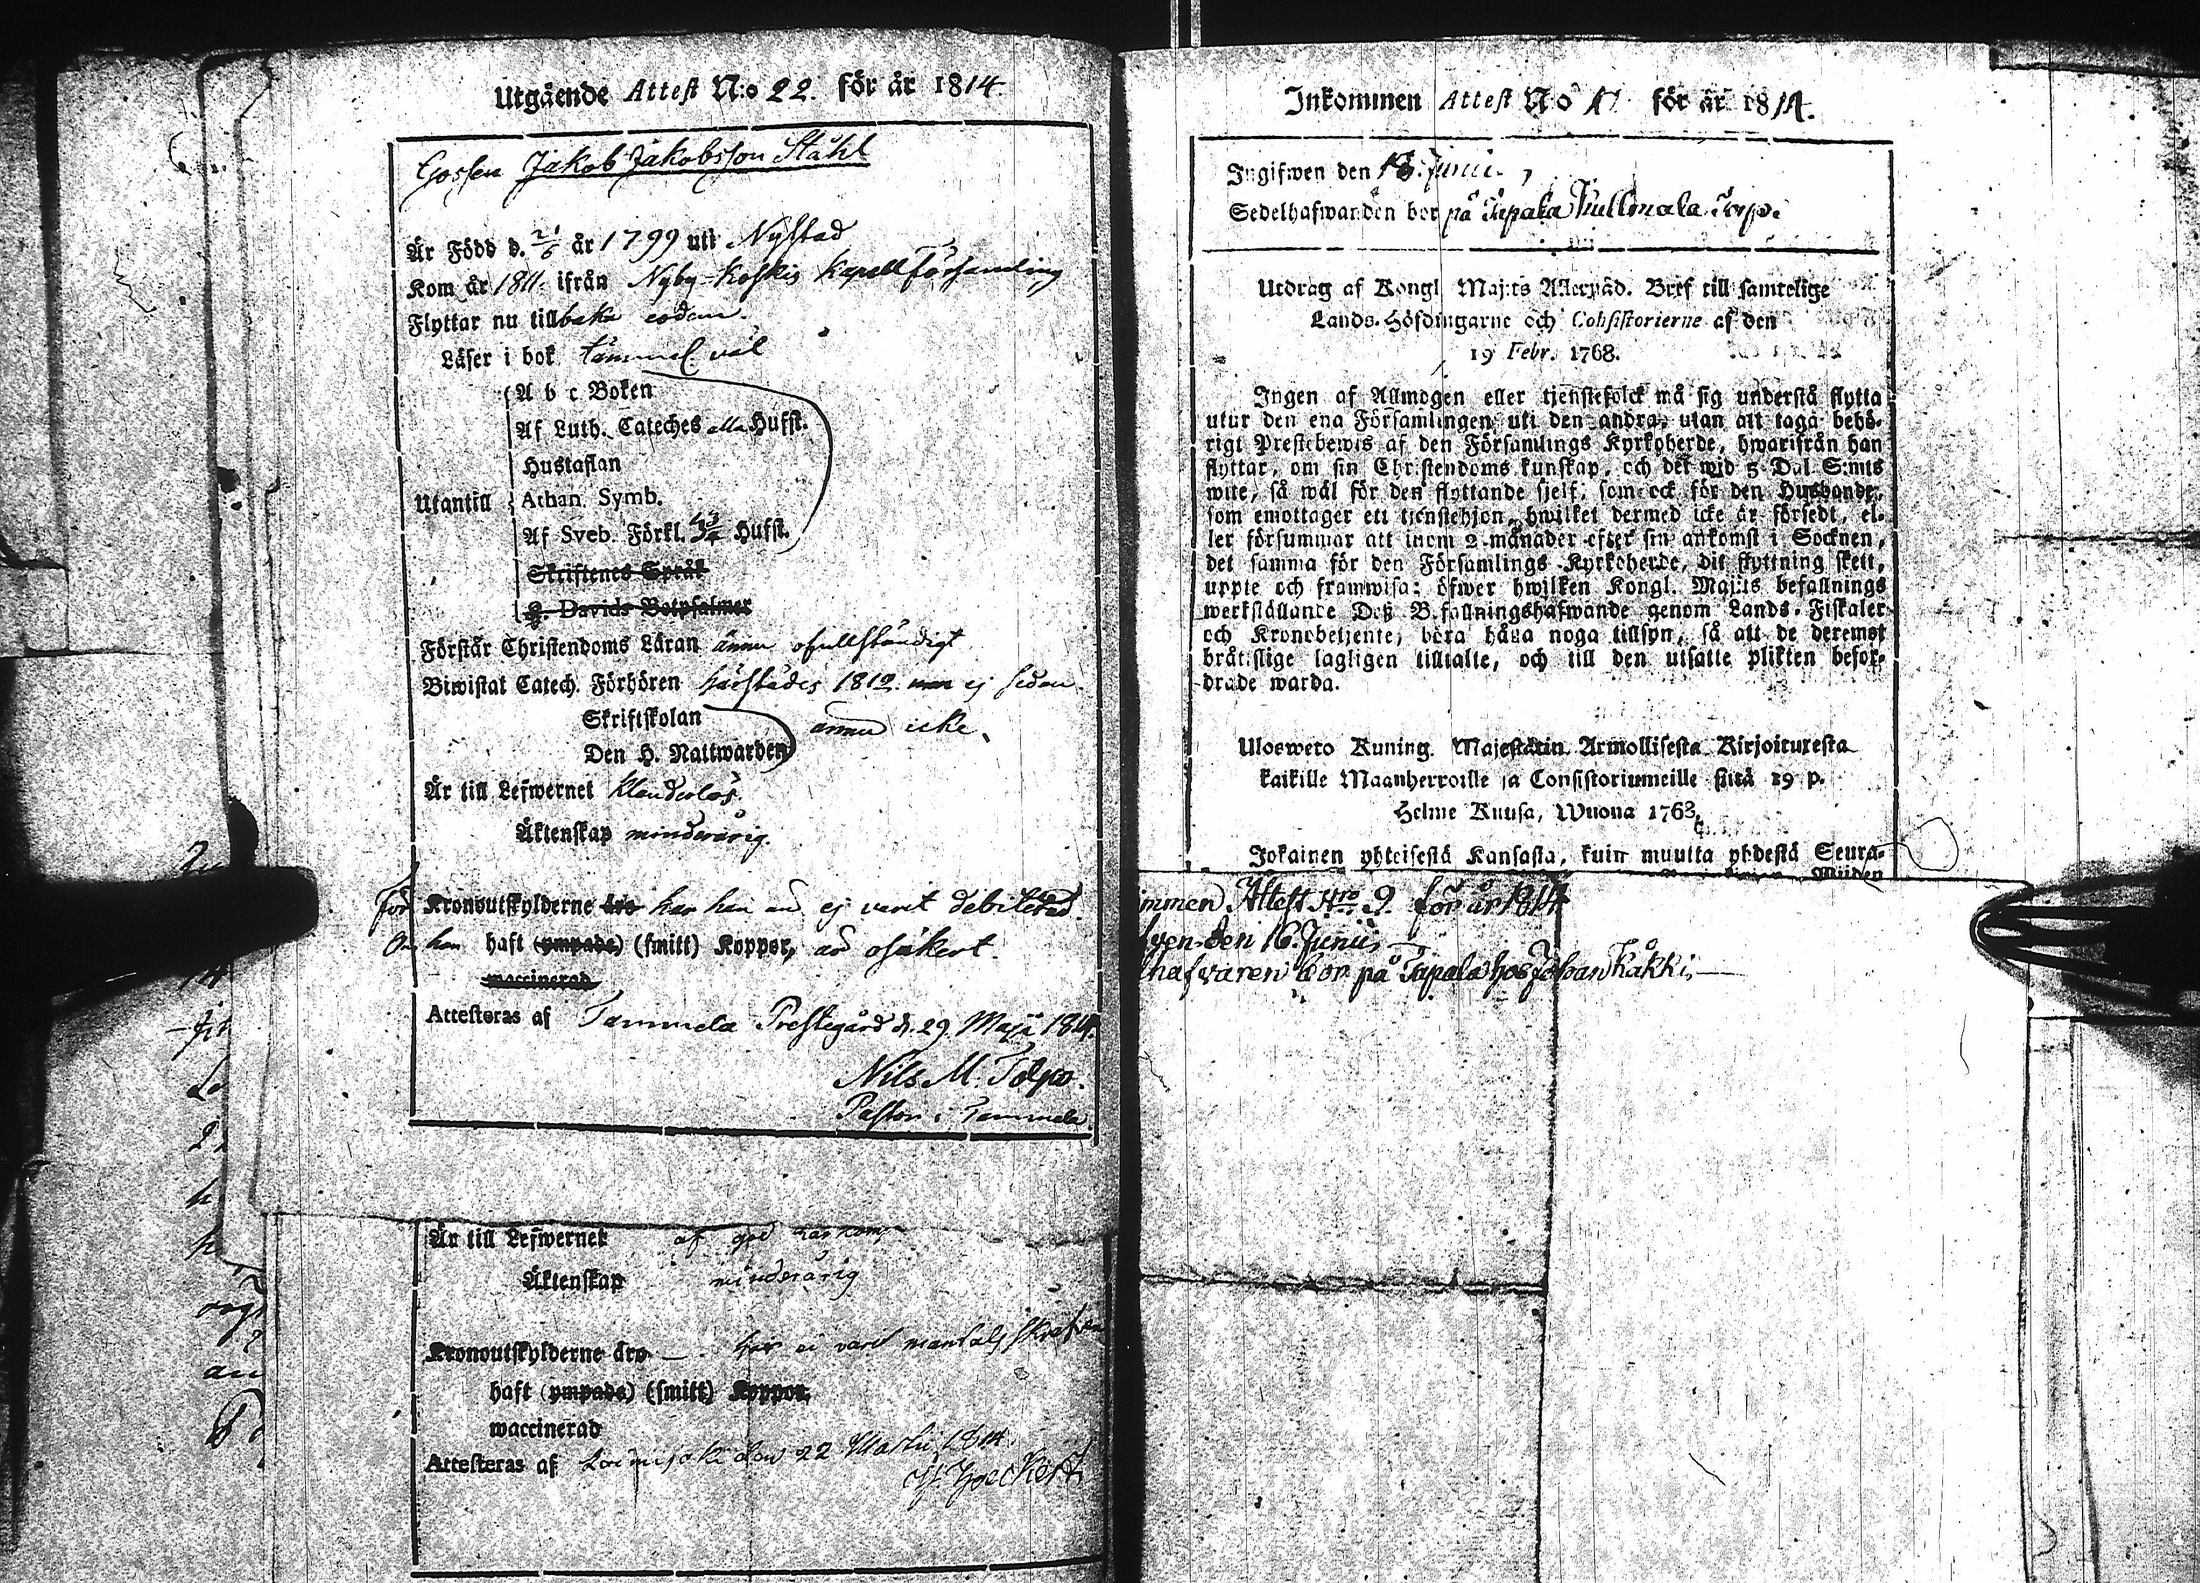 Utgående Attest N:o 22. för år 1814
Gossen Jakob Jakobsson Ståhl
Är Född d. 21/6 år 1799 uti Nystad
Kom år 1811. ifrån Nyby-Koskis Kapell Församling
Flyttar nu tillbaka sedan.
Läser i bok tämmel. väl
A b c Boken
Af Luth. Cateches alla Hufst.
Hustaflan
Utantill Athan. Symb.
Af Sveb. Förkl. Hufst.
Skriftenes Språk
Davids Botpsalmer
Förstår Christendoms Läran ännu ofullständigt
Biwistat Catech. Förhören härstädes 1812. ej sedan.
Skriftskolan
ännu icke.
Den H. Nattwarden
Är till Lefwernet klanderlös.
Äktenskap minderårig.
för Kronoutskylderne äro har han än ej varit debiterad.
Om han haft (ympade) (smitt) Koppor, är osäkert.
waccinerad
Attesteras af Tammela Prestegård d. 29. Maji 1814.
Nils M. Tolpo.
Pastor i Tammela.
Är till Lefwernet af god
Äktenskap minderårig
Kronoutskylderne äro har ei varit mantals skrefven
haft (ympade) (smitt) Koppor.
waccinerad
Attesteras af Loimijoki den 22 Martii 1814.
Inkommen Attest N:o för år 1814.
Ingifwen den 18. Junii.
Sedelhafwanden bor på Tapala Kullmala Torp.
Utdrag af Kongl. Maj:ts Allernåd. Bref till samtelige
Lands-Höfdingarne och Consistorierne af den
19 Febr. 1768.
Ingen af Allmogen eller tjenstefolck må sig understå flytta
utur den ena Församlingen uti den andra, utan att taga behö-
rigt Prestebewis af den Församlings Kyrkoherde, hwarifrån han
flyttar, om sin Christendoms kunskap, och det wid 5 Dal. S:mts
wite, så wäl för den flyttande sjelf, som ock för den Husbonde,
som emottager ett tjenstehjon, hwilket dermed icke är försedt, el-
ler försummar att inom 2 månader efter sin ankomst i Socknen,
det samma för den Församlings Kyrkoherde, dit flyttning skett,
uppte och framwisa: öfwer hwilken Kongl. Maj:ts befallnings
werkställande Deß Befallningshafwande genom Lands-Fiskaler
och Kronobetjente, böra hafwa noga tillsyn, så att de deremot
bråtslige lagligen tilltalte, och till den utsatte plikten befor-
drade warda.
Ulosweto Kuning. Majestätin Armollisesta Kirjoituxesta
kaikille Maanherroille ja Consistoriumeille siitä 19 p.
Helme Kuusa, Wuona 1768.
Jokainen yhteisestä Kansasta, kuin muutta yhdestä Seura-
mmen Attest Nro 9. för år 1814
fven den 16. Junii
hafvaren bor på Tapala hos Johan Kåkki,